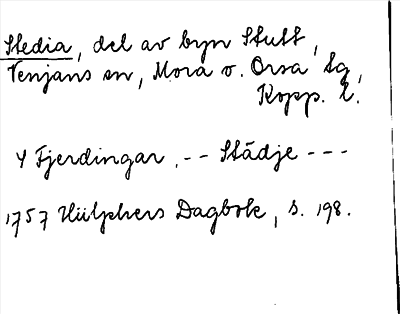 Stedia, del av byn Stutt,
Venjans sn, Mora o. Orsa tg,
Kopp. l.
4 Fjerdingar, -- Städje ---
1757 Hülphers Dagbok, s. 198.